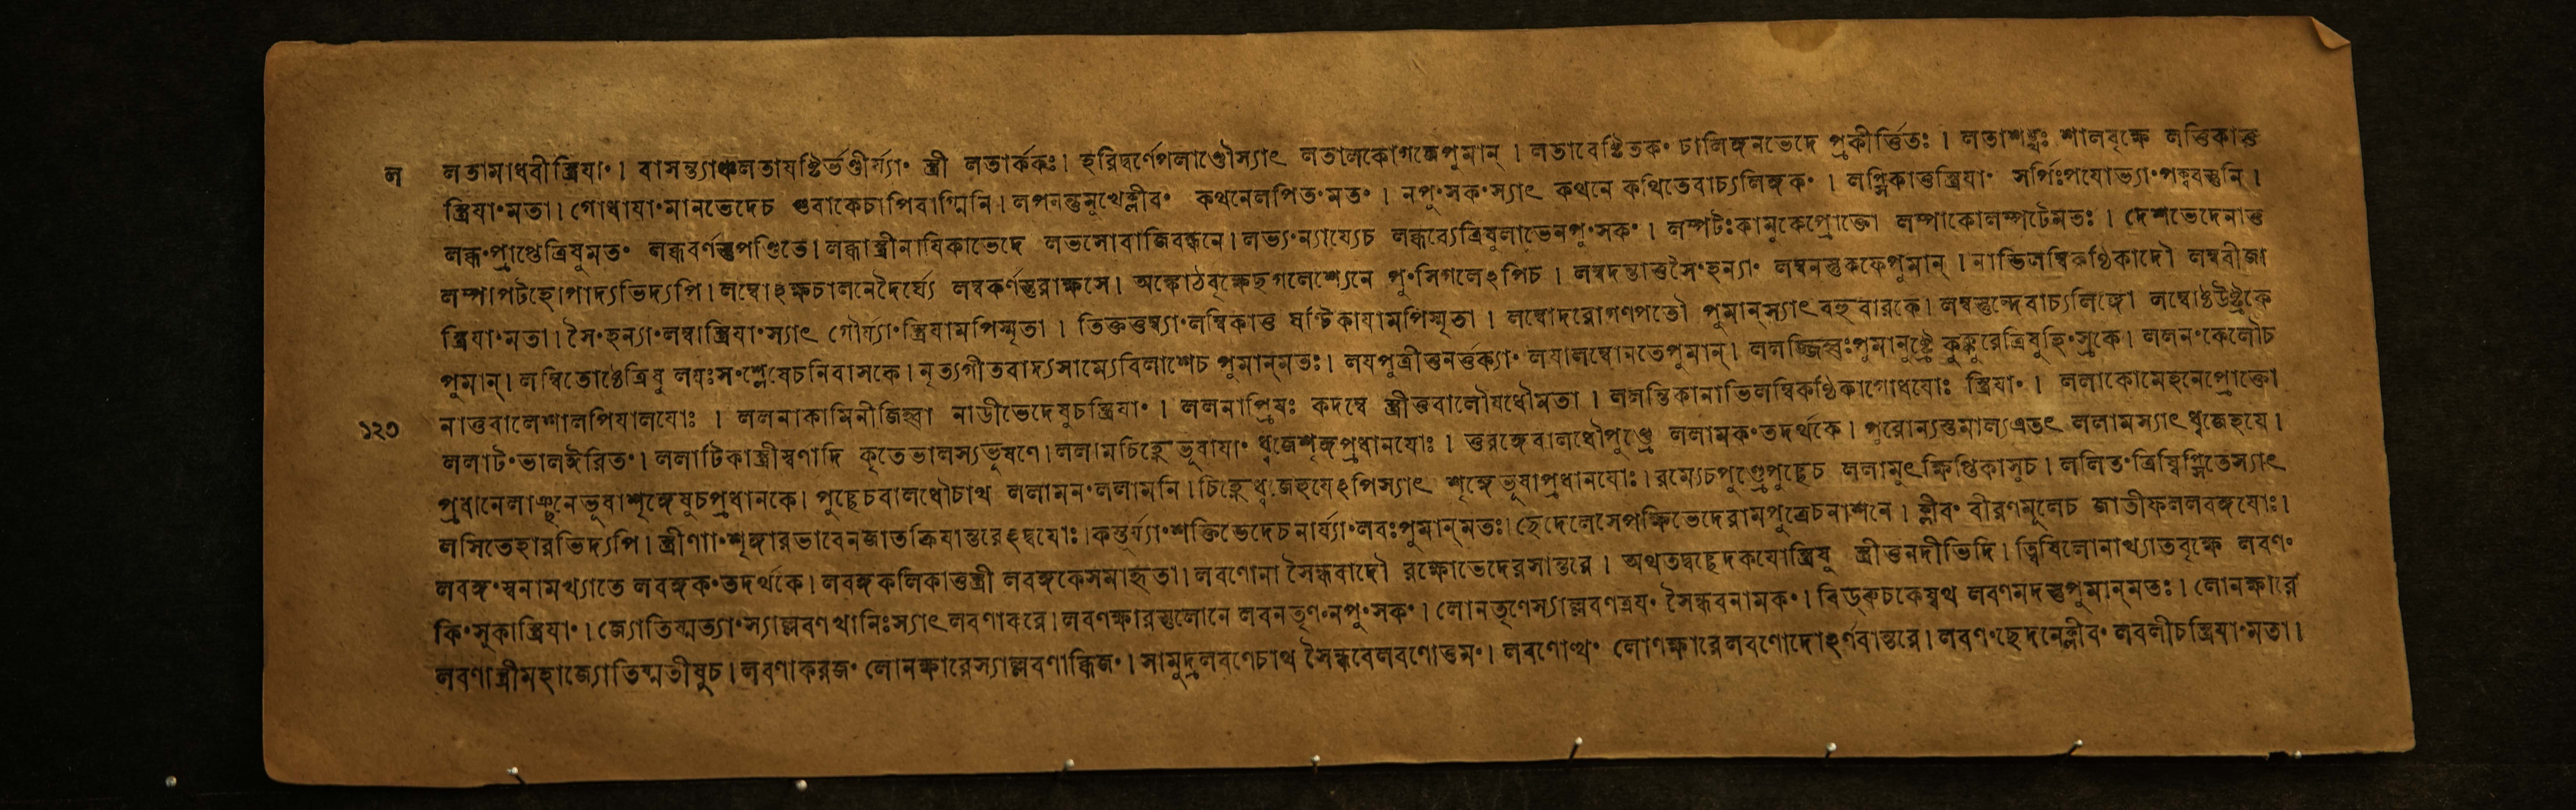 ল লতামাধবীস্ত্রিযাং। বাসন্ত্যাঞ্চলতাযষ্টির্ভণ্ডীর্য্যাং স্ত্রী লতার্ককঃ। হরিদ্বর্ণেপলাণ্ডৌস্যাৎ লতালকোগজেপুমান্। লতাবেষ্টিতকং চালিঙ্গনভেদে প্রকীর্ত্তিতঃ। লতাশঙ্খঃ শালবৃক্ষে লত্তিকাত্ত
স্ত্রিযাংমতা। গোধাযাংমানভেদেচ শুবাকেচাপিবাগ্মিনি। লপনন্তুমুখেক্লীবং কথনেলপিতংমতং। নপুংসকংস্যাৎ কথনে কথিতেবাচ্যলিঙ্গকং। লপ্সিকাত্তস্ত্রিযাং সর্পিঃপযোভ্যাংপক্ববস্তুনি।
লব্ধংপ্রাপ্তেত্রিষুমতং লব্ধবর্ণস্তুপণ্ডিতে। লব্ধাস্ত্রীনাযিকাভেদে লভসোবাজিবন্ধনে। লভ্যংন্যায্যেচ লব্ধব্যেত্রিষুলাভেনপুংসকং। লম্পটঃকামুকেপ্রোক্তো লম্পাকোলম্পটেমতঃ। দেশভেদেনাত্ত
লম্পাপটহোপাদ্যভিদ্যপি। লম্বোঽক্ষচালনেদৈর্ঘ্যে লম্বকর্ণস্তুরাক্ষসে। অঙ্কোঠবৃক্ষেছগলেশ্যেনে পুংসিগলেঽপিচ। লম্বদন্তাত্তসৈংহল্যাং লম্বনস্তুকফেপুমান্। নাভিলম্বিকণ্ঠিকাদৌ লম্ববীজা
স্ত্রিযাংমতা। সৈংহল্যাংলম্বাস্ত্রিযাংস্যাৎ গৌর্য্যাংস্ত্রিযামপিস্মৃতা। তিক্ততুম্ব্যাংলম্বিকাত্ত ঘন্টিকাযামপিস্মৃতা। লম্বোদরোগণপতৌ পুমান্স্যাৎ বহুবারকে। লম্বস্তুন্দেবাচ্যলিঙ্গো লম্বোষ্ঠউষ্ট্রকে
পুমান্। লম্বিতোষ্ঠেত্রিষু লযঃসংশ্লেষেচনিবাসকে। নৃত্যগীতবাদ্যসাম্যেবিলাশেচ পুমান্মতঃ। লযপুত্রীত্তনর্ত্তক্যাং লযালম্বোনতেপুমান্। ললজ্জিহ্বঃপুমানুষ্ট্রে কুক্কুরেত্রিষুহিংস্রকে। ললনংকেলৌচ
১২৩ নাত্তবালেশালপিযালযোঃ। ললনাকামিনীজিহ্বা নাডীভেদেষুচস্ত্রিযাং। ললনাপ্রিযঃ কদম্বে স্ত্রীত্তবালৌষধৌমতা। ললন্তিকানাভিলম্বিকণ্ঠিকাগোধযোঃ স্ত্রিযাং। ললাকোমেহনেপ্রোক্তো
ললাটংভালঈরিতং। ললাটিকাস্ত্রীস্বর্ণাদি কৃতেভালস্যভূষণে। ললামচিহ্নেভূষাযাং ধ্বজেশৃঙ্গপ্রধানযোঃ। ত্তরঙ্গেবালধৌপুণ্ড্রে ললামকংতদর্থকে। পুরোন্যস্তমাল্যএতৎ ললামস্যাৎ ধ্বজেহযে।
প্রধানেলাঞ্ছনেভূষাশৃঙ্গেষুচপ্রধানকে। পুচ্ছেচবালধৌচাথ ললামনংললামনি। চিহ্নেধ্বজহযেঽপিস্যাৎ শৃঙ্গেভূষাপ্রধানযোঃ। রম্যেচপুণ্ড্রেপুচ্ছেচ ললামুৎক্ষিপ্তিকাসুচ। ললিতংত্রিষ্বিপ্সিতেস্যাৎ
লসিতেহারভিদ্যপি। স্ত্রীণাংশৃঙ্গারভাবেনজাতক্রিযান্তরেঽদ্বযোঃ। কস্তুর্য্যাংশক্তিভেদেচনার্য্যাংলবঃপুমান্মতঃ। ছেদেলেসেপক্ষিভেদেরামপুত্রেচনাশনে। ক্লীবং বীরণমূলেচ জাতীফললবঙ্গযোঃ।
লবঙ্গংস্বনামখ্যাতে লবঙ্গকংতদর্থকে। লবঙ্গকলিকাত্তস্ত্রী লবঙ্গকেসমাহৃতা। লবণোনা সৈন্ধবাদৌ রক্ষোভেদেরসান্তরে। অথতদ্বচ্ছেদকযোস্ত্রিষু স্ত্রীত্তনদীভিদি। ত্বিষিলোনাখ্যাতবৃক্ষে লবণং
কিংসুকাস্ত্রিযাং। জ্যোতিষ্মত্যাংস্যাল্লবণখানিঃস্যাৎ লবণাকরে। লবণক্ষারস্তুলোনে লবনতৃণংনপুংসকং। লোনতৃণেস্যাল্লবণত্রযং সৈন্ধবনামকং। বিড্রুচকেষ্বথ লবণমদস্তুপুমান্মতঃ। লোনক্ষারে
লবণাস্ত্রীমহাজ্যোতিষ্মতীষুচ। লবণাকরজং লোনক্ষারেস্যাল্লবণাব্ধিজং। সামুদ্রলবণেচাথ সৈন্ধবেলবণোত্তমং। লবণোত্থং লোণক্ষারেলবণোদোঽর্ণবান্তরে। লবণংছেদনেক্লীবং লবলীচস্ত্রিযাংমতা।